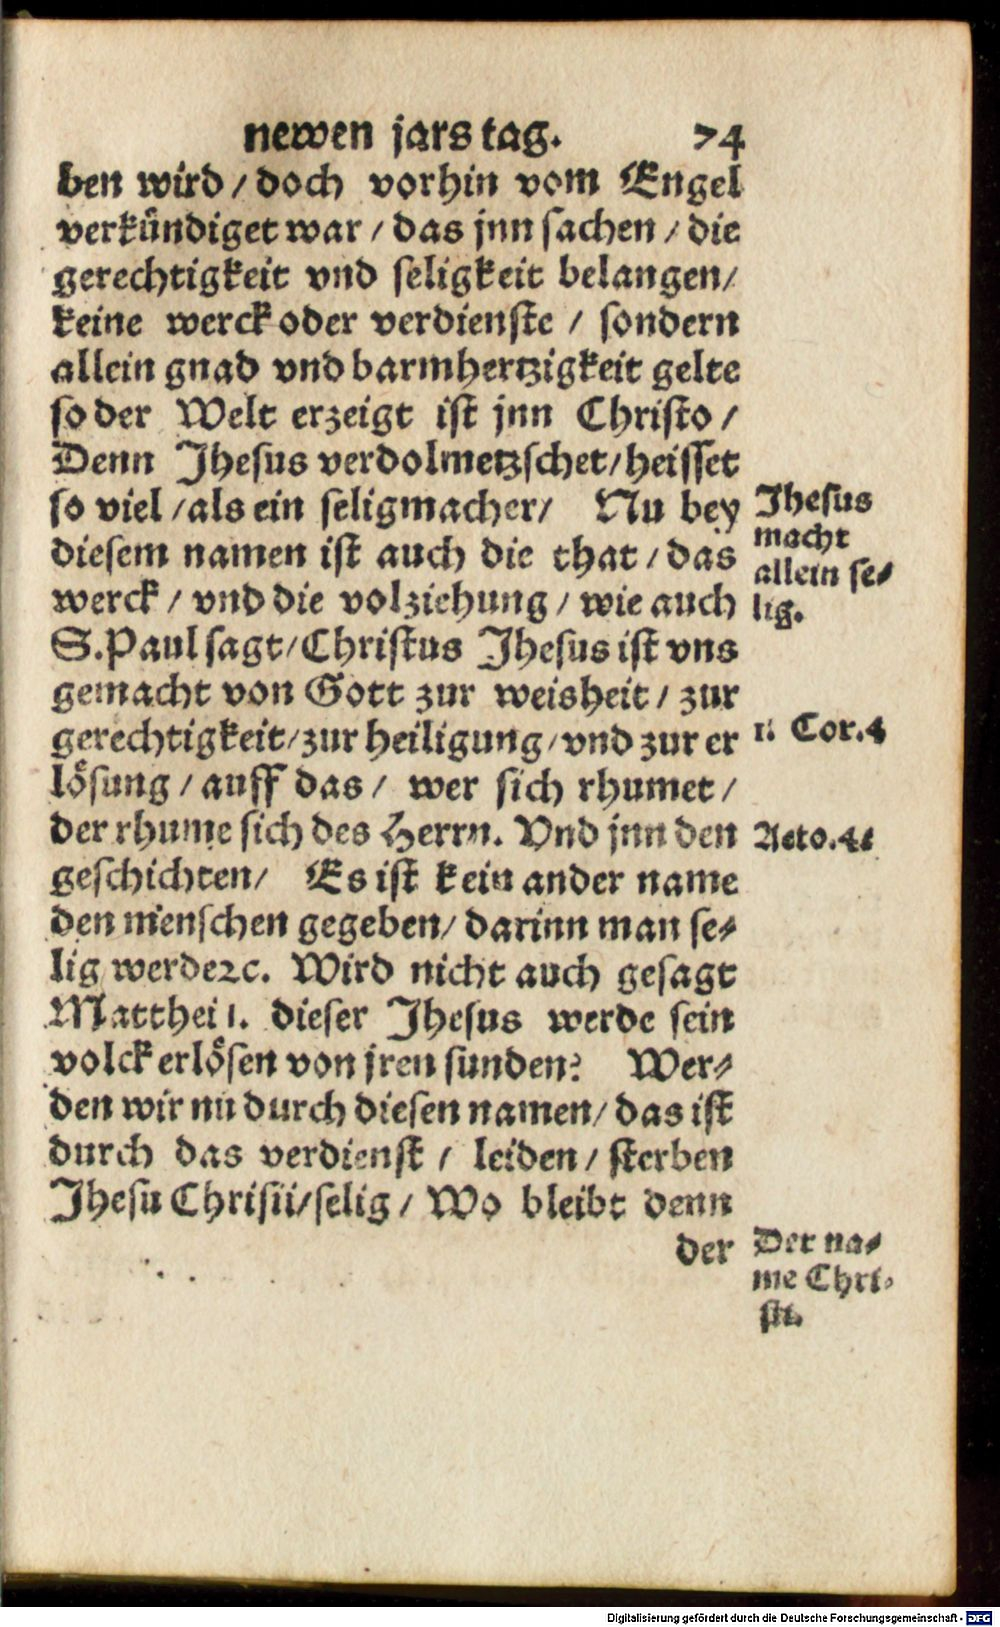 newen jars tag. 74
ben wird / doch vorhin vom Engel
verkündiget war / das jnn sachen / die
gerechtigkeit vnd seligkeit belangen /
keine werck oder verdienste / sondern
allein gnad vnd barmhertzigkeit gelte
so der Welt erzeigt ist jnn Christo /
Denn Jhesus verdolmetzschet / heisset
so viel / als ein seligmacher / Nu bey
diesem namen ist auch die that / das
werck / vnd die volziehung / wie auch
S. Paul sagt / Christus Jhesus ist vns
gemacht von Gott zur weisheit / zur
gerechtigkeit / zur heiligung / vnd zur er
lösung / auff das / wer sich rhumet /
der rhume sich des Herrn. Vnd jnn den
geschichten / Es ist kein ander name
den menschen gegeben / darinn man se-
lig werde ꝛc. Wird nicht auch gesagt
Matthei 1. dieser Jhesus werde sein
volck erlösen von jren sunden? Wer-
den wir nu durch diesen namen / das ist
durch das verdienst / leiden / sterben
Jhesu Christi / selig / Wo bleibt denn
der
Jhesus
macht
allein se-
lig.
1. Cor. 4
Acto. 4.
Der na-
me Chri-
sti.
Digitalisierung gefördert durch die Deutsche Forschungsgemeinschaft - DFG